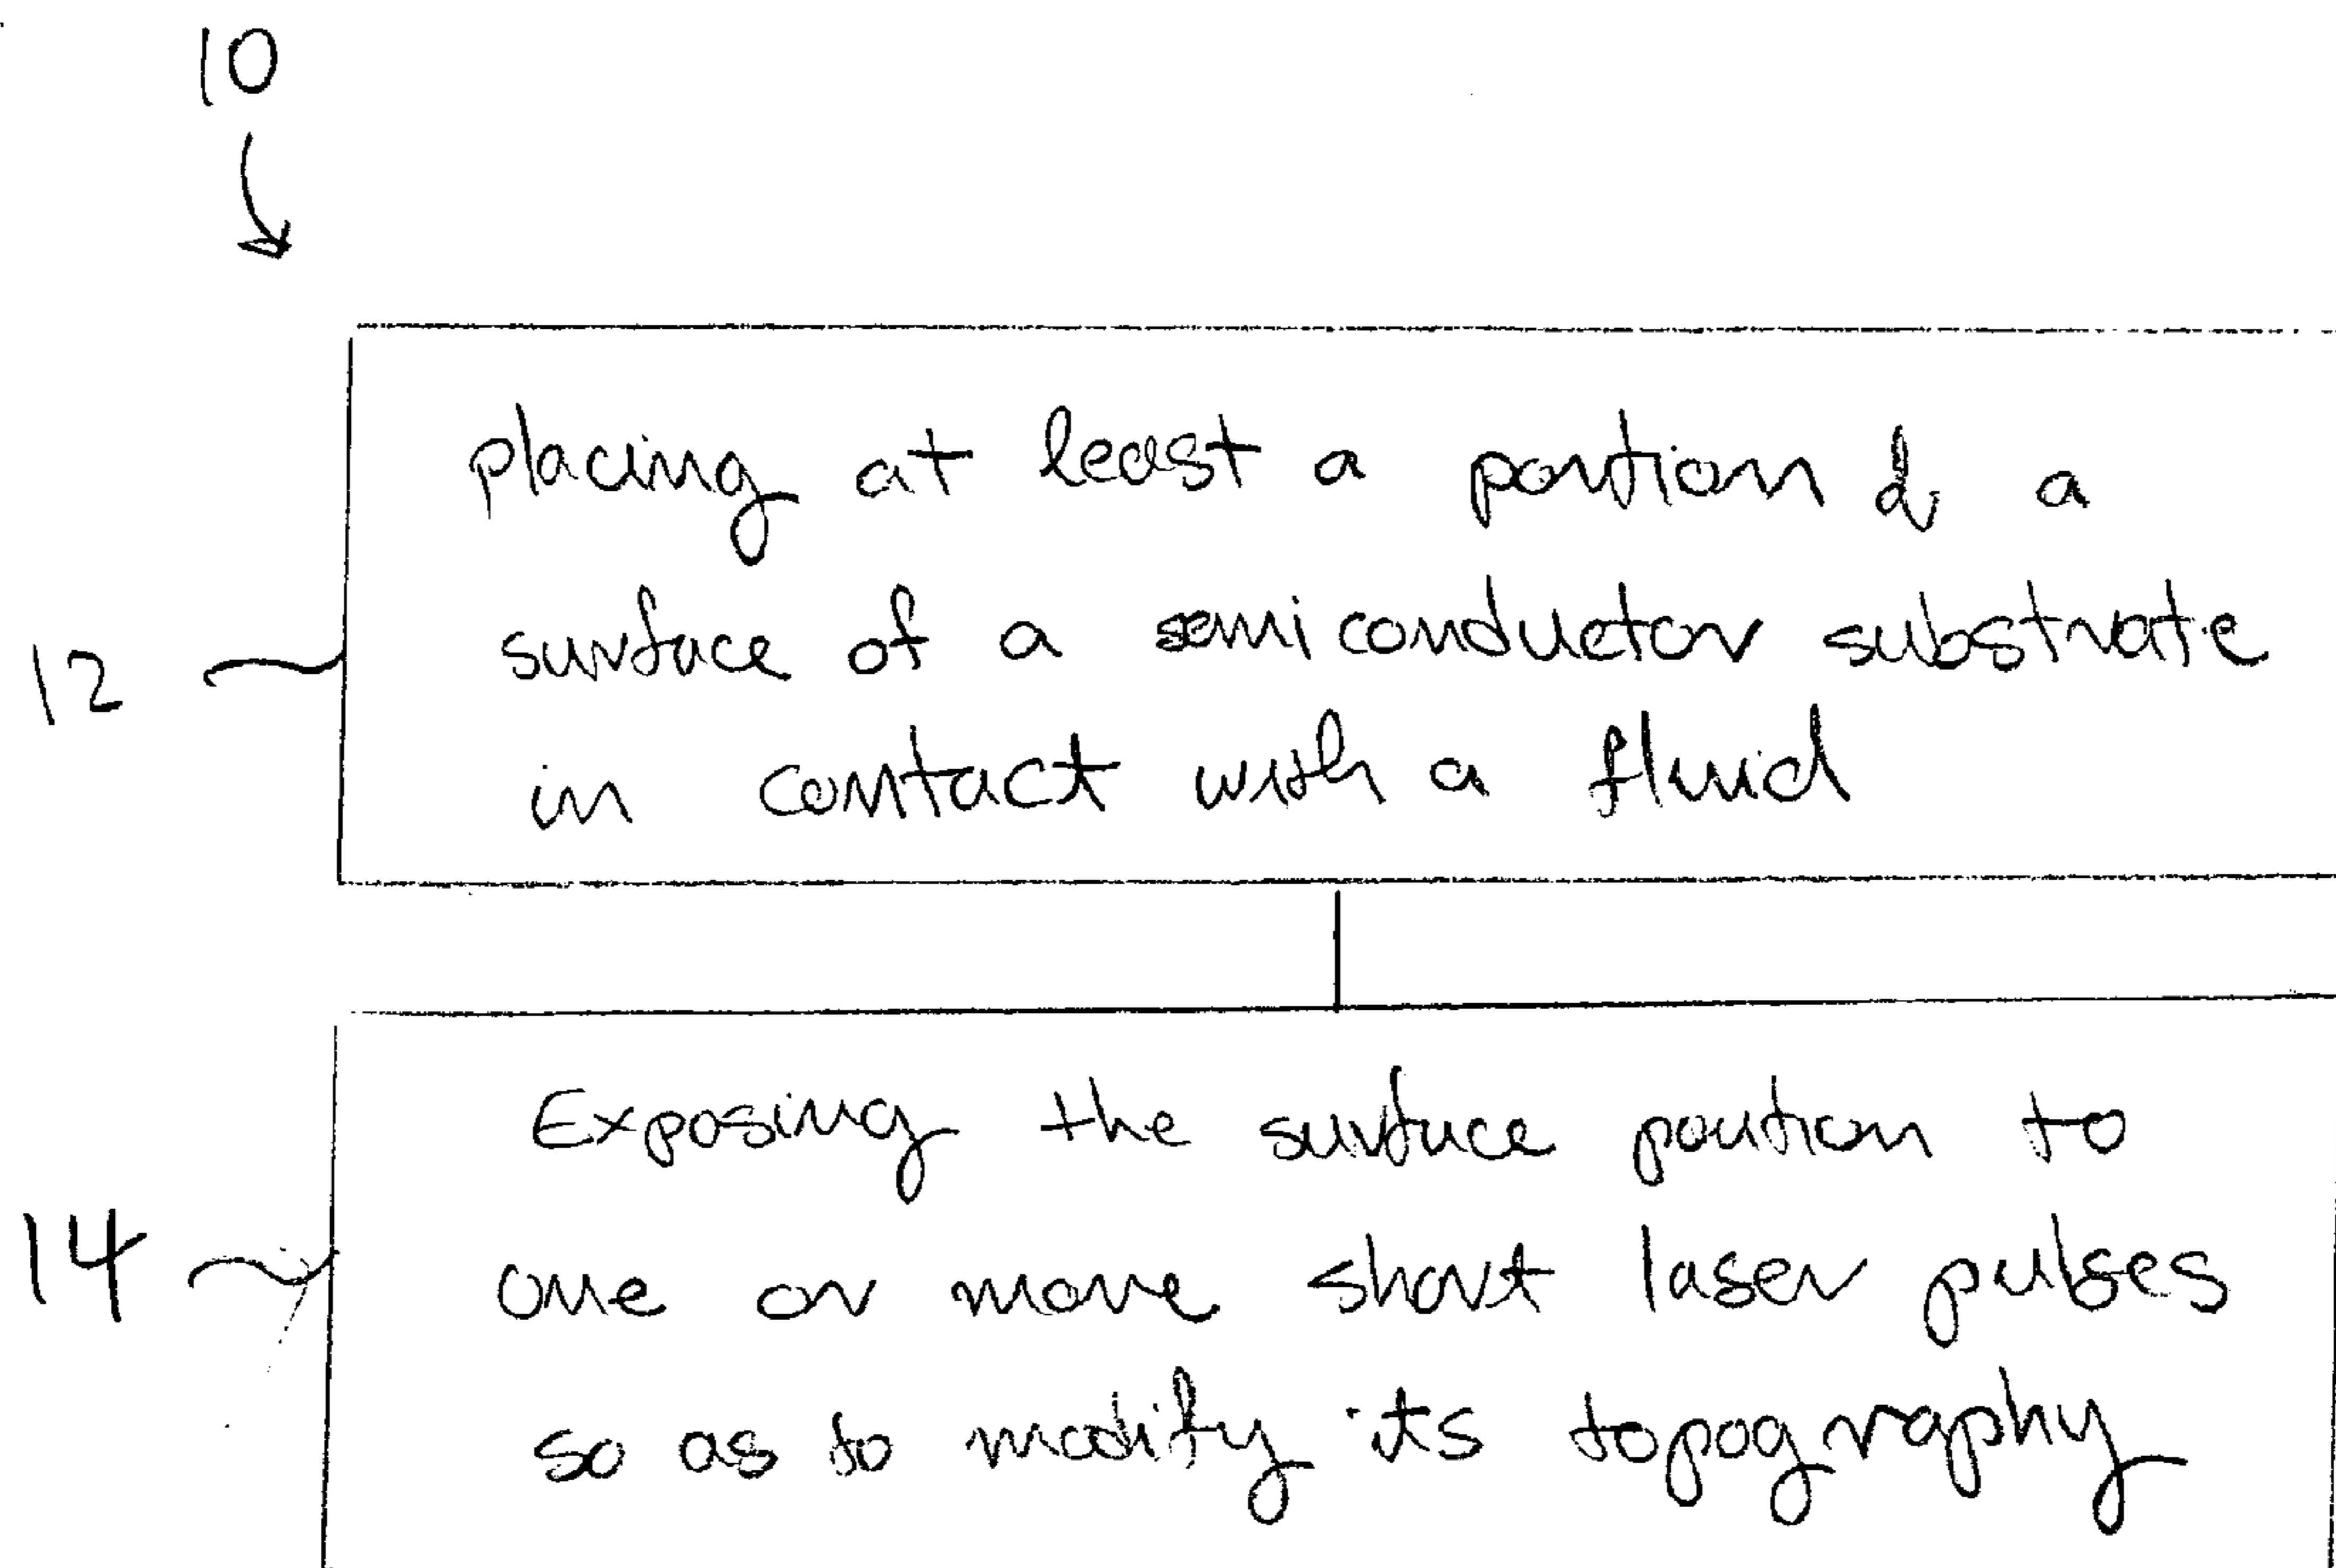 10
placing at least a portion of a
12 surface of a semiconductor substrate
in contact with a fluid
Exposing the surface portion to
14 one or more short laser pulses
so as to modify its topography